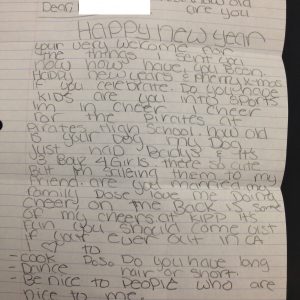 how old
Dear, are you
Happy new year
your very welcome for
the things I sent you
now how have you been
Happy new years & Merry Christmas
if you celebrate. Do you have
kids are you into sports
im in cheer I cheer
for the Pirates at
Pirates High School. how old
is your dog my Dog
Just had 7 Babys & its
3 Boy 4 Girls there so cute
But im saleing them to my
friend. are you married
family Dose love me Doing
cheery on the Back is some
of my cheers at KIPP its
fun you should come ust
if your ever out in CA
to
- cook DoSo Do you have long
- Dance hair or short.
- Be nice to People who are
nice to me.